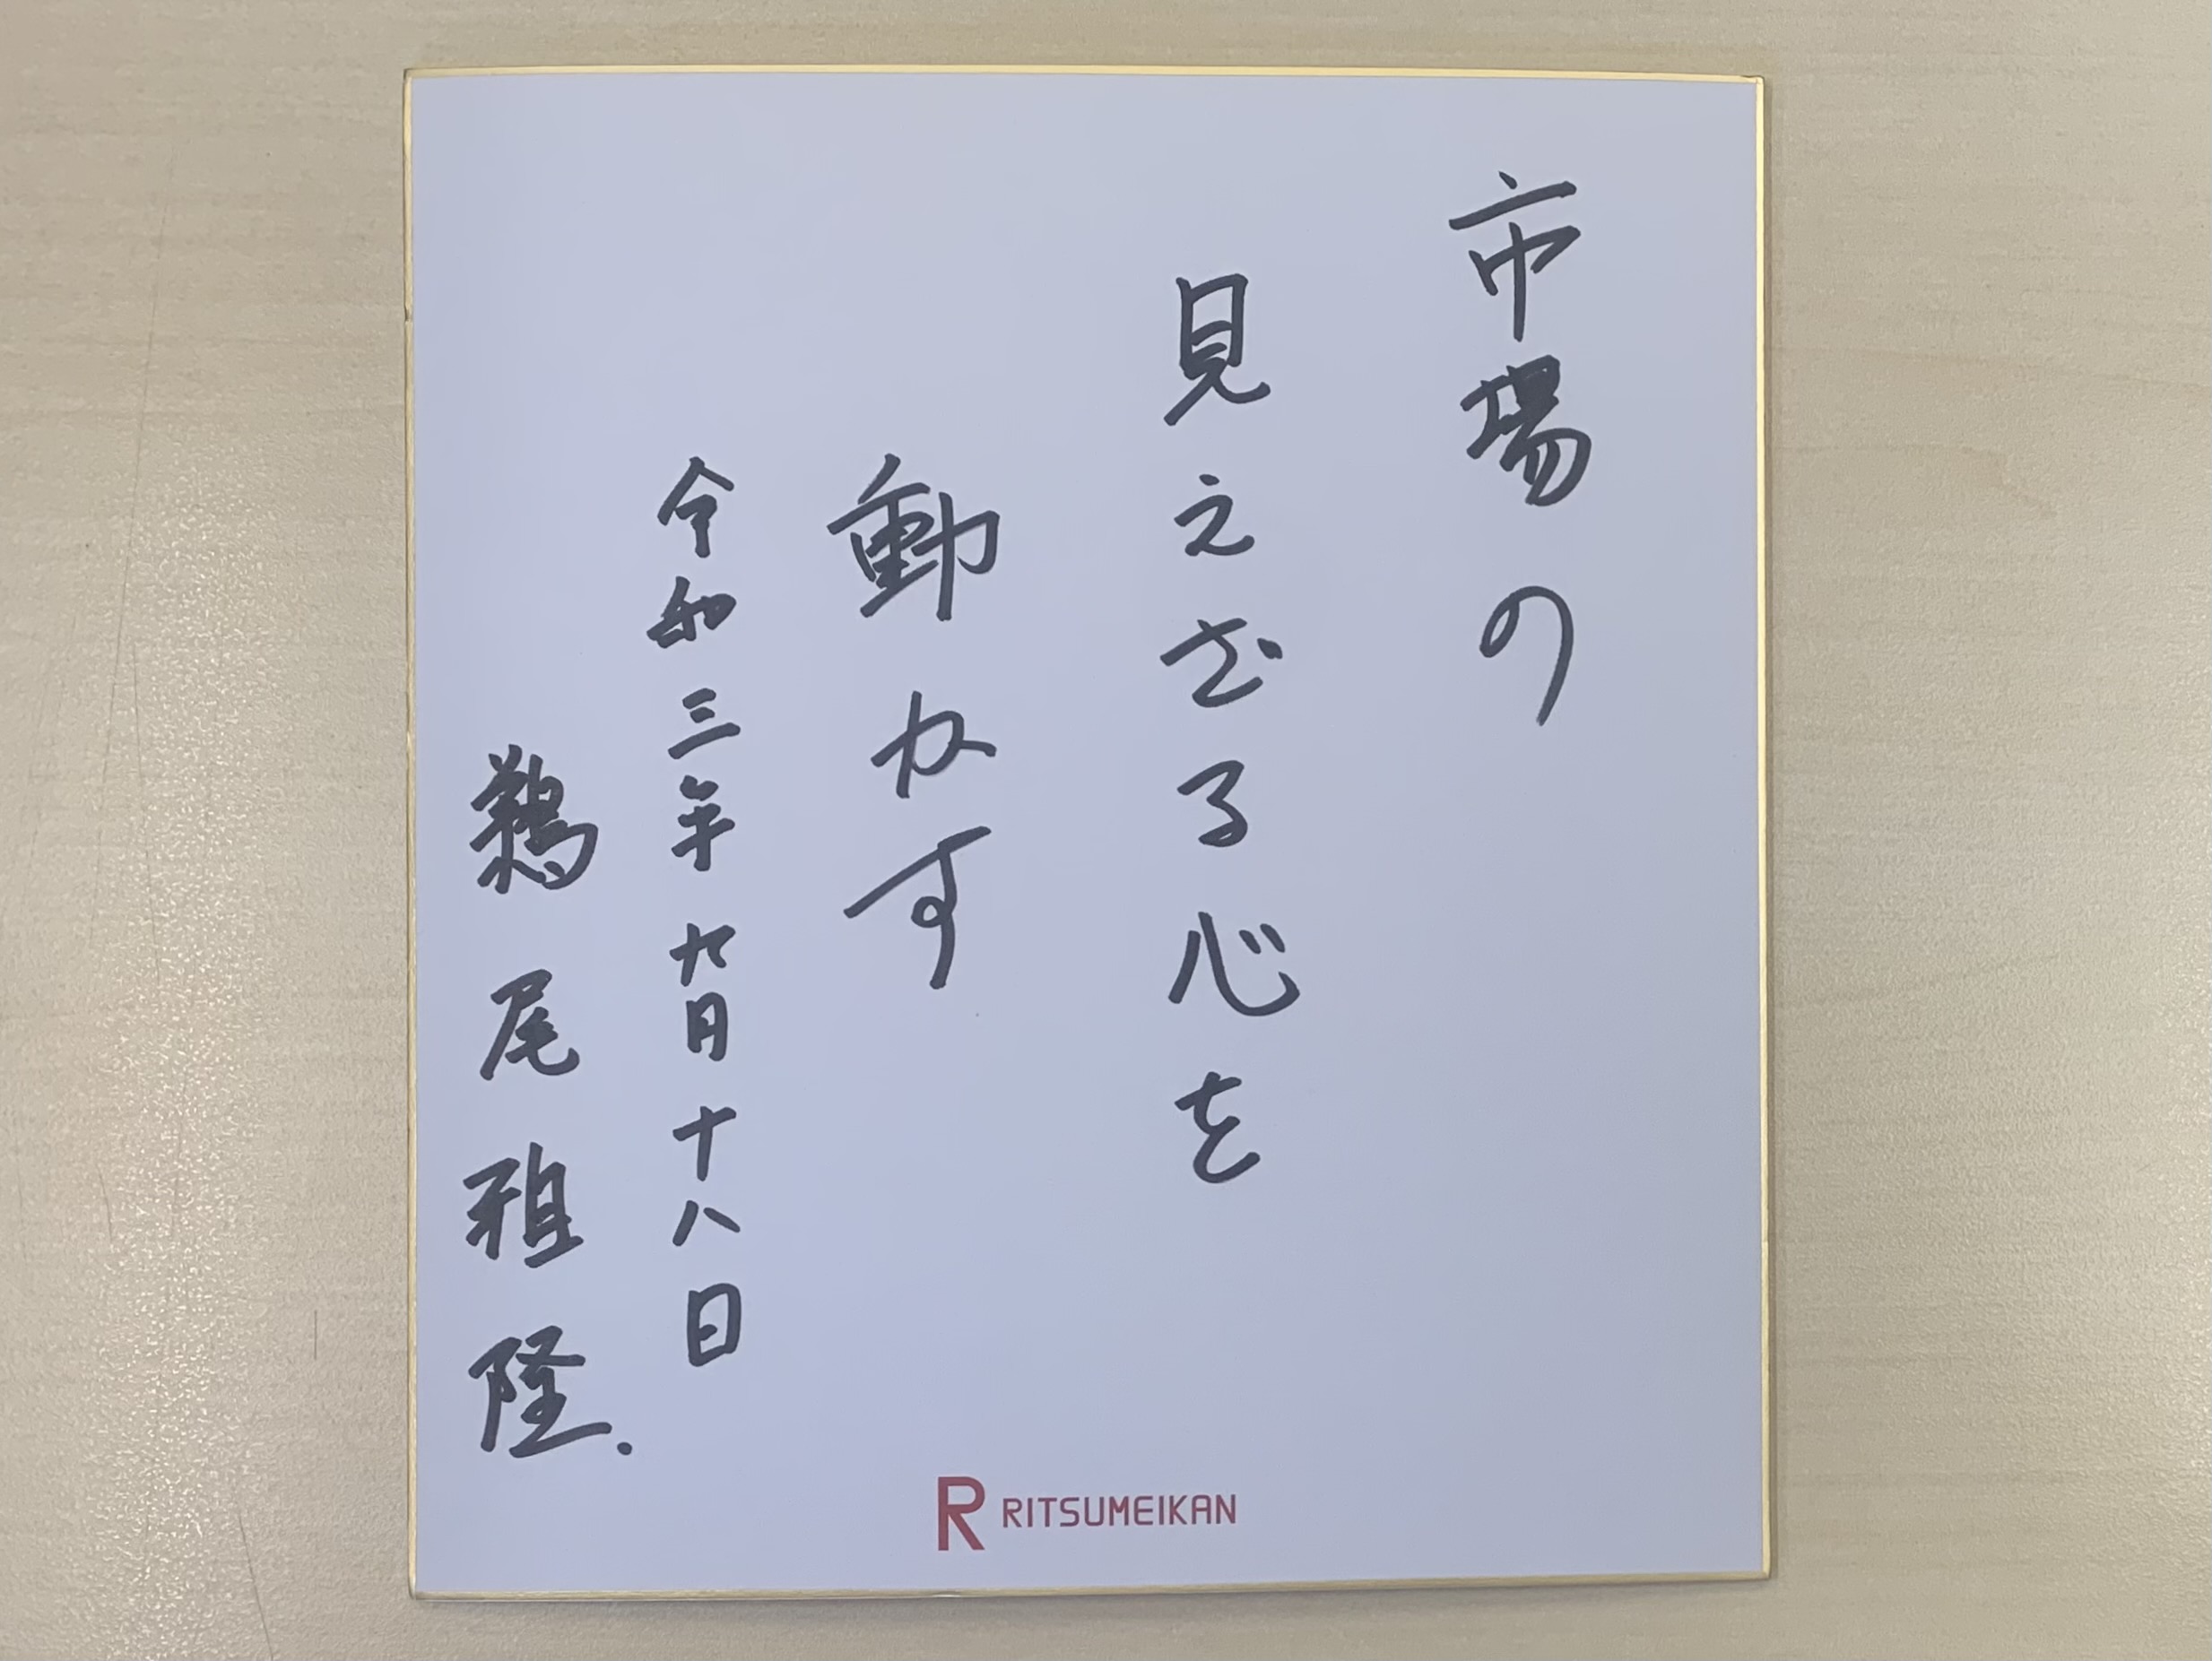 市場の
見えざる心を
動かす
令和三年九月十八日
鵜尾雅隆.
R RITSUMEIKAN